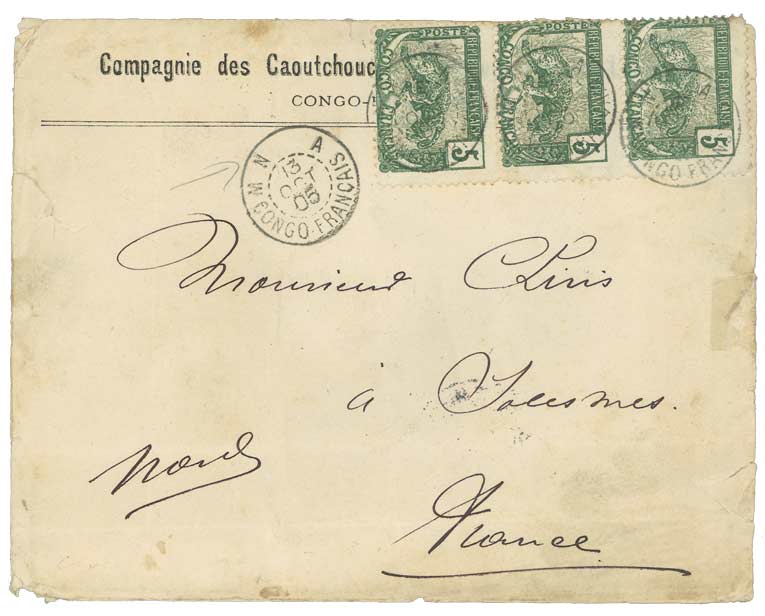 Compagnie des Caoutchouc
CONGO-
POSTE
RÉPUBLIQUE FRANÇAISE
CONGO FRANÇAIS
5
POSTE
RÉPUBLIQUE FRANÇAISE
CONGO FRANÇAIS
5
RÉPUBLIQUE FRANÇAISE
CONGO FRANÇAIS
5
CONGO-FRANÇAIS
13
OCT
05
Monsieur
à Solesmes.
Nord
France